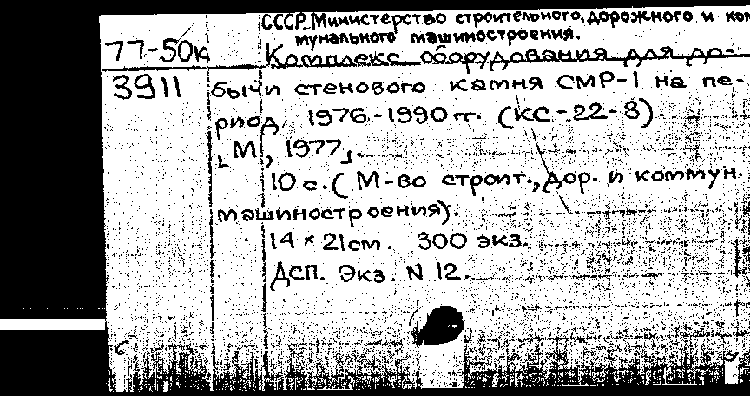 СССР. Министерство строительного, дорожного и ком
мунального машиностроения.
77-50к Комплекс оборудования для до-
3911 бычи стенового камня СМР-1 на пе-
риод 1976-1990 гг. (КС-22-8)
[М], 1977].
10 с. (М-во строит., дор. и коммун.
машиностроения).
14 × 21см. 300 экз.
ДСП. Экз. N 12.